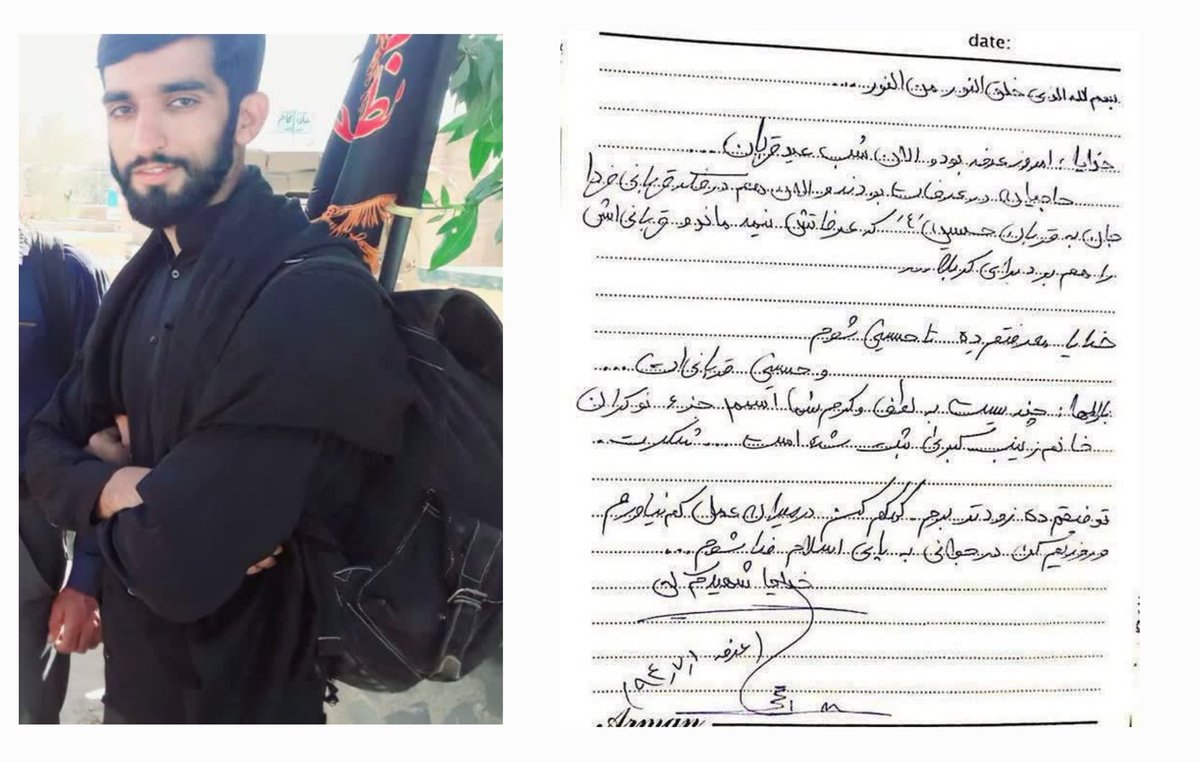 date:
بسم الله الذی خلق النور من النور....
خدایا، امروز عرفه بود و الان شب عید قربان....
حاجیان در عرفات بودند و الان هم در فکر قربانی فردا
جان به قربان حسین "ع" که عرفاتش نیمه ماند و قربانی‌اش
را هم برد برای کربلا....
خدایا معرفتم ده تا حسینی شوم
و حسینی قربانی‌ات.....
بارالها: چندیست به لطف و کرم شما اسمم جزء نوکران
خانم زینب کبری ثبت شده است.... شکرت..
توفیقم ده زودتر بروم. کمکم کن در میدان عمل کم نیاورم
و روزیم کن در جوانی به پای اسلام فدا شوم...
خدایا شهیدم کن
عرفه ۹۴،۷،۱
Arman